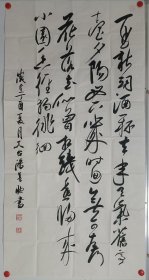 一曲新词酒一杯去年天气旧亭
台夕阳西下几时回无可奈何
花落去似曾相识燕归来
小园香径独徘徊
夏月
书